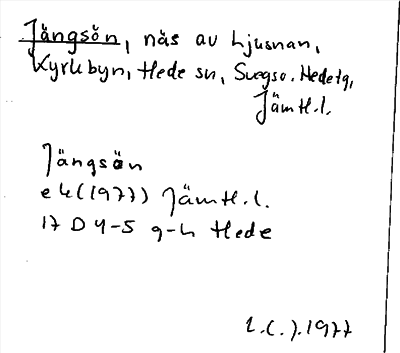 Jängsön, näs av Ljusnan,
Kyrkbyn, Hede sn, Svegso. Hedetg,
Jämtl.l.
Jängsön
ek (1977) Jämtl.l.
17 D 4-5 g-h Hede
L.C.J. 1977